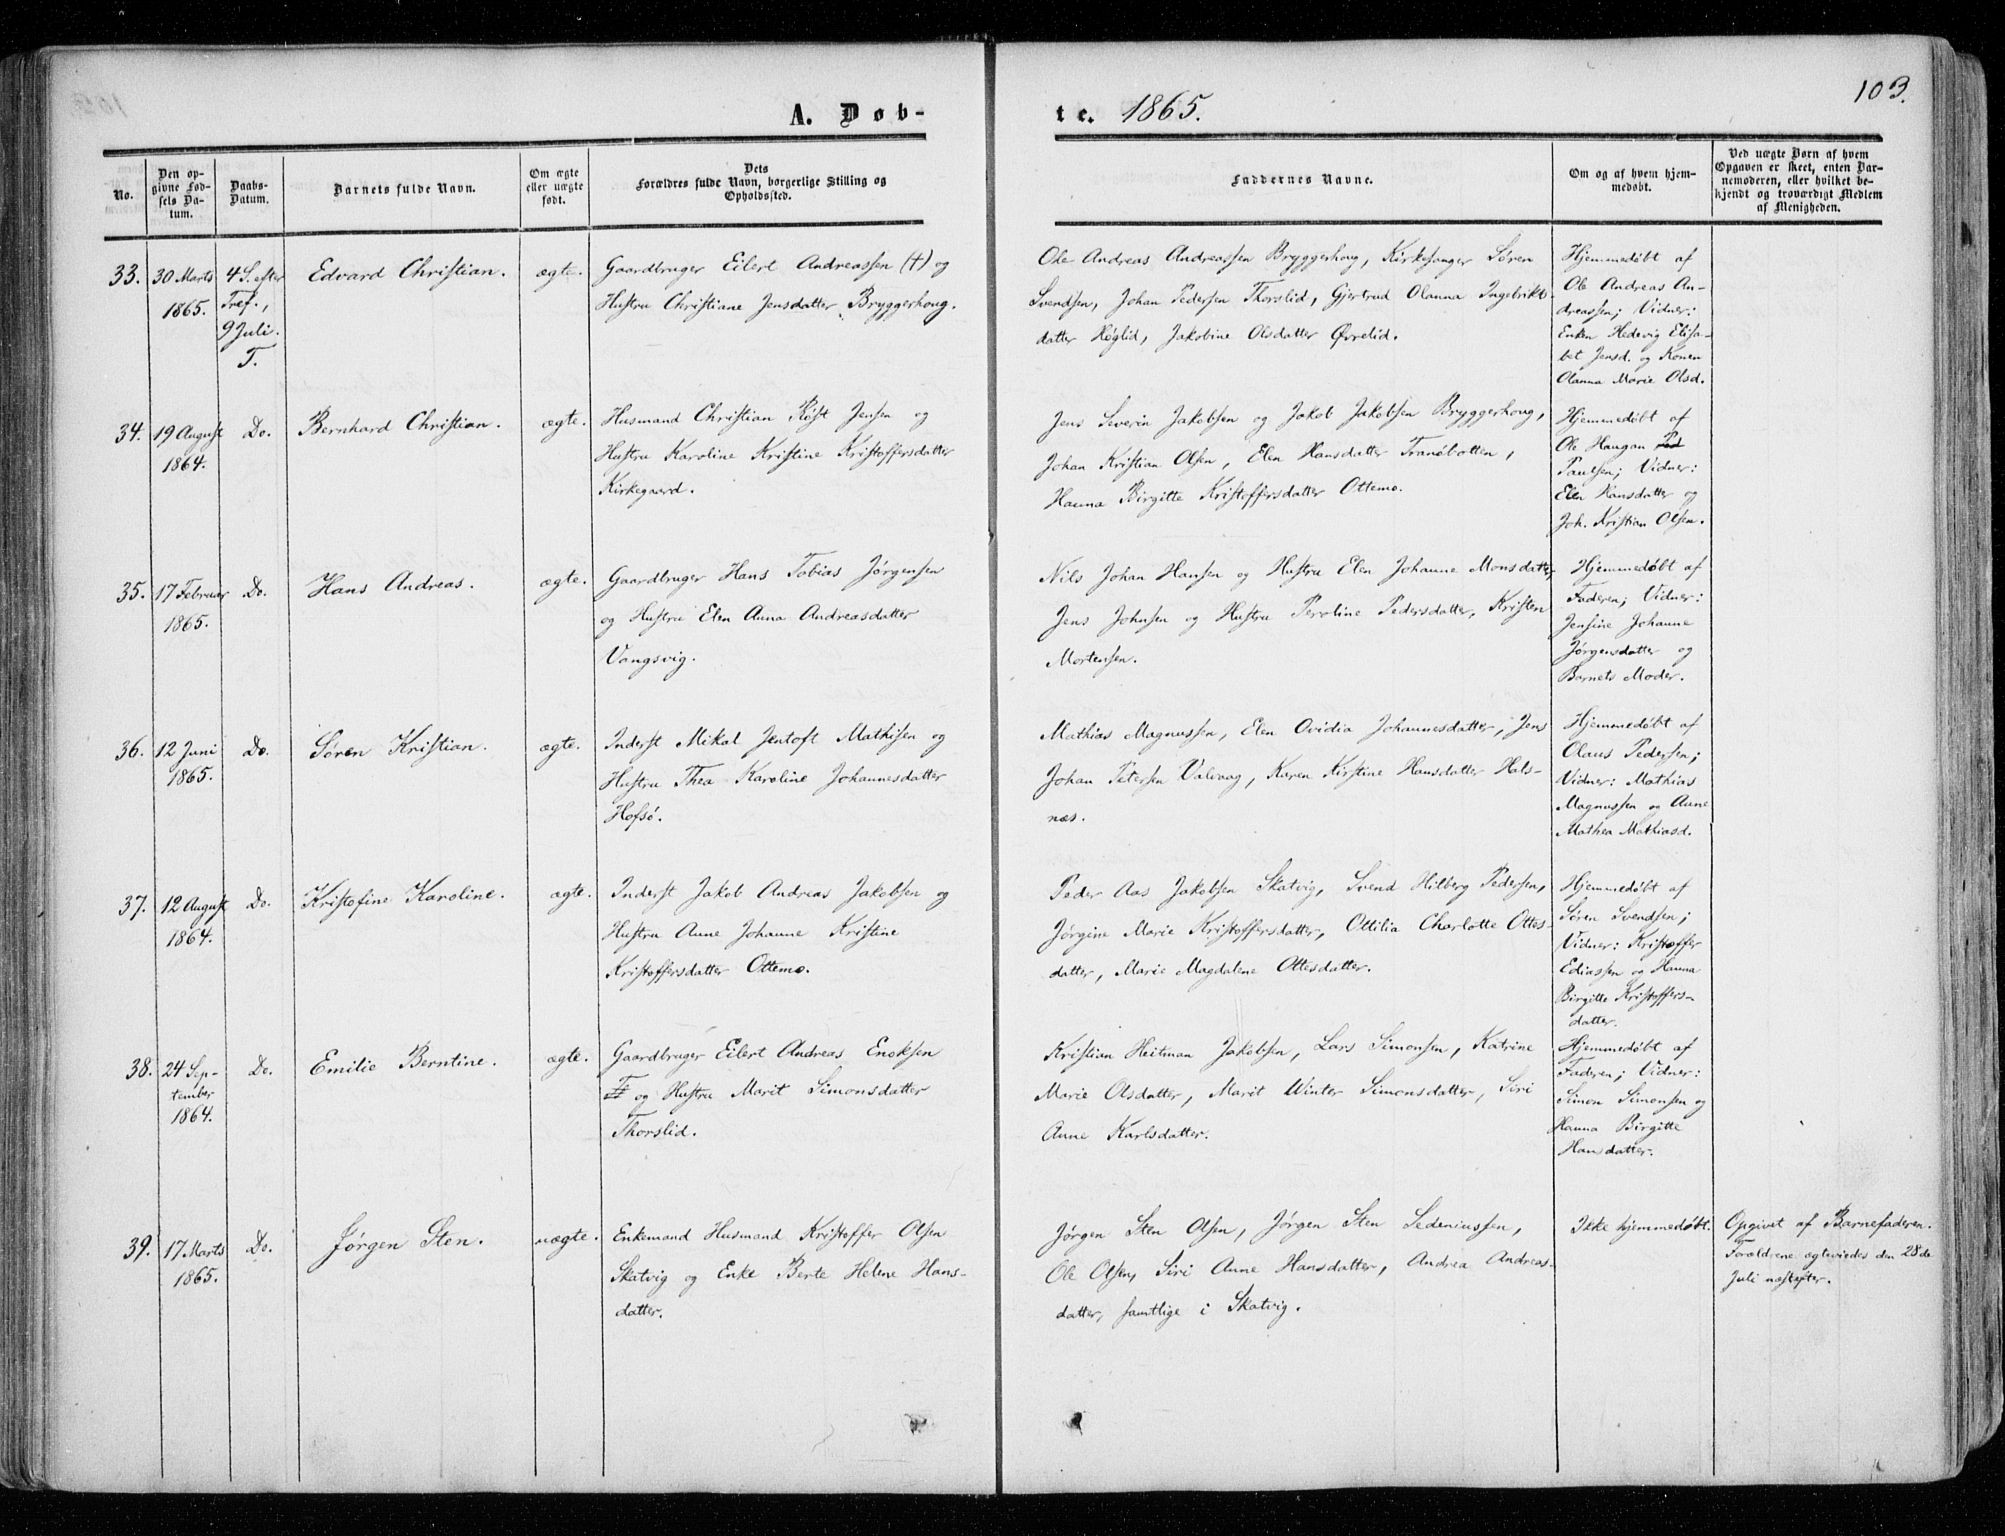 103.
A. Døb-
te. 1865.
No.
Den op-
givne Fød-
sels Da-
tum.
Daabs-
Datum.
Barnets fulde Navn.
Om ægte
eller uægte
født.
Dets
Forældres fulde Navn, borgerlige Stilling og
Opholdssted.
Faddernes Navne.
Om og af hvem hjem-
medøbt.
Ved uægte Børn af hvem
Opgaven er skeet, enten Bar-
nemoderen, eller hvilket be-
kjendt og troværdigt Medlem
af Menigheden.
33.
30 Marts
1865.
4 S. efter
Tref.,
9 Juli.
T.
Edvard Christian.
ægte.
Gaardbruger Eilert Andreassen (†) og
Hustru Christiane Jensdatter Bryggerhoug.
Ole Andreas Andreassen Bryggerhoug, Kirkesanger Søren
Svendsen, Johan Pedersen Thorslid, Gjertrud Olanna Ingebrikt-
datter Høglid, Jakobine Olsdatter Øvrelid.
Hjemmedøbt af
Ole Andreas An-
dreassen; Vidner:
Enken Hedevig Elisa-
bet Jensd. og Konen
Olanna Marie Olsd.
34.
19 August
1864.
Do.
Bernhard Christian.
ægte.
Husmand Christian Røst Jensen og
Hustru Karoline Kristine Kristoffersdatter
Kirkegaard.
Jens Severin Jakobsen og Jakob Jakobsen Bryggerhoug,
Johan Kristian Olsen, Elen Hansdatter Tranøbotten,
Hanna Birgitte Kristoffersdatter Ottemo.
Hjemmedøbt af
Ole Haugan
Paulsen; Vidner:
Elen Hansdatter og
Joh. Kristian Olsen.
35.
17 Februar
1865.
Do.
Hans Andreas.
ægte.
Gaardbruger Hans Tobias Jørgensen
og Hustru Elen Anna Andreasdatter
Vangsvig.
Nils Johan Hansen og Hustru Elen Johanne Monsdatter,
Jens Johnsen og Hustru Peroline Pedersdatter, Kristen
Mortensen.
Hjemmedøbt af
Faderen; Vidner:
Jensine Johanne
Jørgensdatter og
Barnets Moder.
36.
12 Juni
1865.
Do.
Søren Kristian.
ægte.
Inderst Mikal Jentoft Mathisen og
Hustru Thea Karoline Johannesdatter
Hofsø.
Mathias Magnussen, Elen Ovidia Johannesdatter, Jens
Johan Petersen Valvaag, Karen Kirstine Hansdatter Hals-
næs.
Hjemmedøbt af
Olaus Pedersen;
Vidner: Mathias
Magnussen og Anne
Mathea Mathiasd.
37.
12 August
1864.
Do.
Kristofine Karoline.
ægte.
Inderst Jakob Andreas Jakobsen og
Hustru Anne Johanne Kristine
Kristoffersdatter Ottemo.
Peder Aas Jakobsen Skatvig, Svend Hilberg Pedersen,
Jørgine Marie Kristoffersdatter, Ottilia Charlotte Ottes-
datter, Marie Magdalene Ottesdatter.
Hjemmedøbt af
Søren Svendsen;
Vidner: Kristoffer
Ediassen og Hanna
Birgitte Kristoffers-
datter.
38.
24 Sep-
tember
1864.
Do.
Emilie Berntine.
ægte.
Gaardbruger Eilert Andreas Enoksen
og Hustru Marit Simonsdatter
Thorslid.
Kristian Heitman Jakobsen, Lars Simonsen, Katrine
Marie Olsdatter, Marit Winter Simonsdatter, Siri
Anne Karlsdatter.
Hjemmedøbt af
Faderen; Vidner:
Simon Simonsen og
Hanna Birgitte
Hansdatter.
39.
17 Marts
1865.
Do.
Jørgen Sten.
uægte.
Enkemand Husmand Kristoffer Olsen
Skatvig og Enke Berte Helene Hans-
datter.
Jørgen Sten Olsen, Jørgen Sten Sedeniussen,
Ole Olsen, Siri Anne Hansdatter, Andrea Andreas-
datter, samtlige i Skatvig.
Ikke hjemmedøbt.
Opgivet af Barnefaderen.
Forældrene ægteviedes den 28de
Juli næstefter.